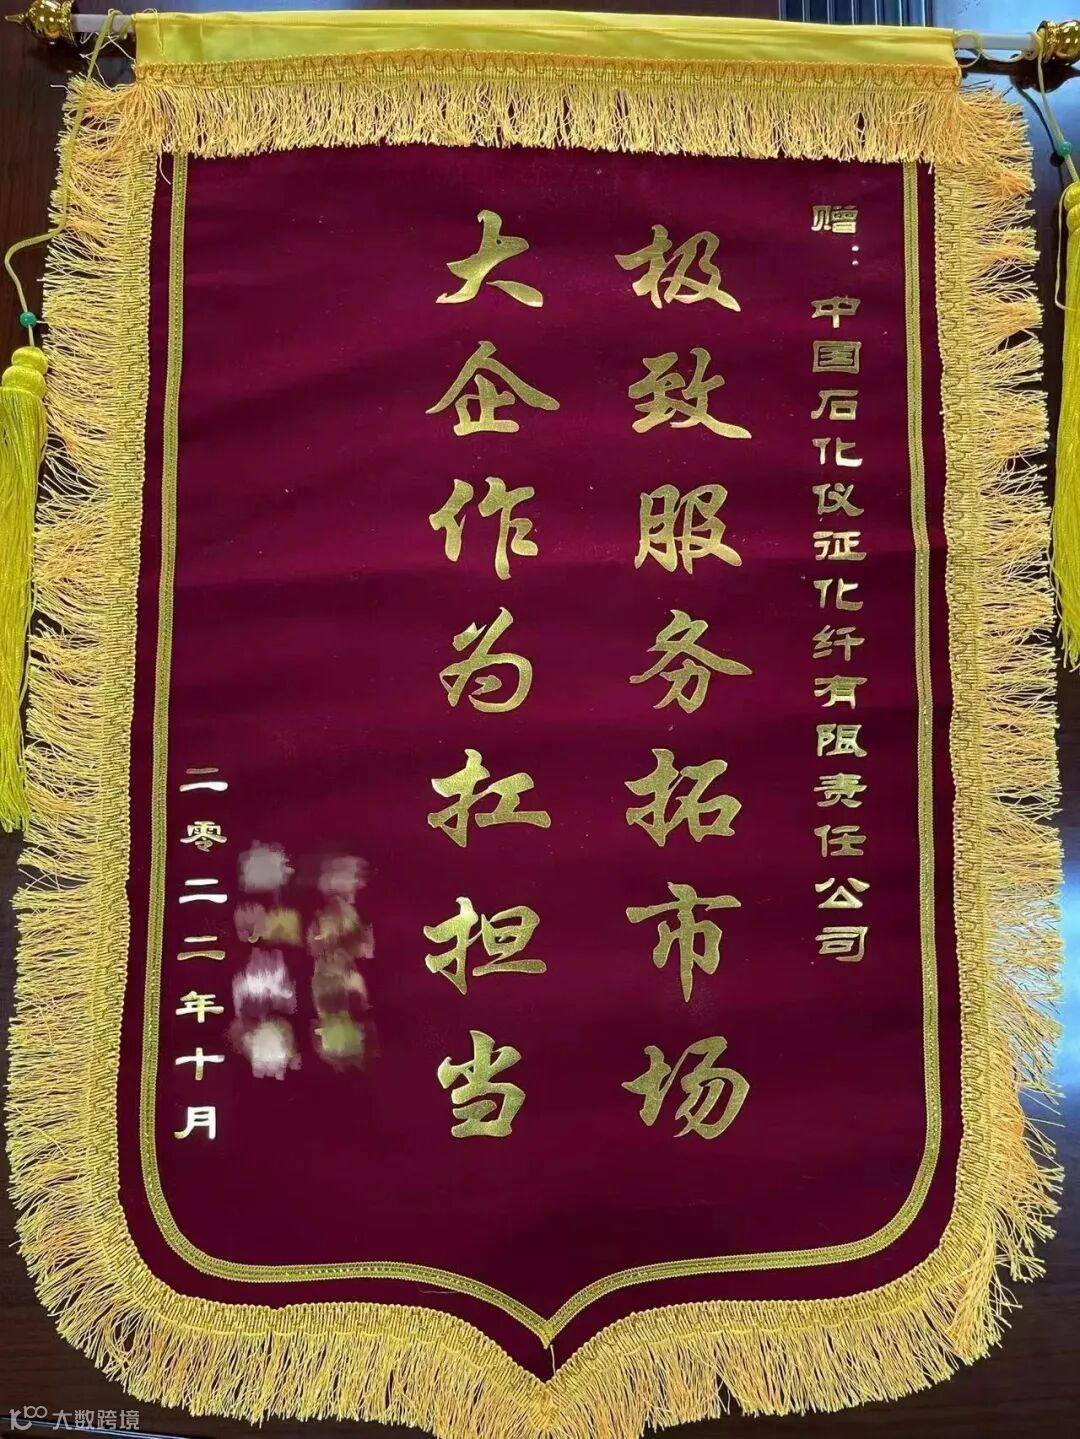 赠：中国石化仪征化纤有限责任公司
极致服务拓市场
大企作为扛担当
二零二二年十月
大数跨境